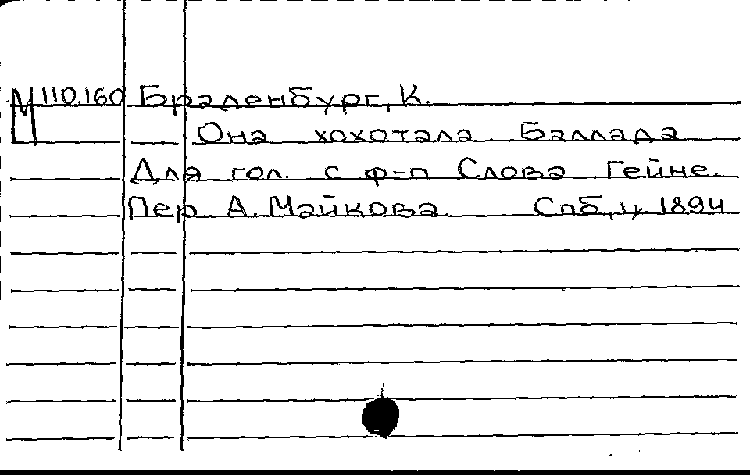 М 110.160 Бранденбург, К.
Она хохотала. Баллада
Для гол. с ф-п Слова Гейне.
Пер А. Майкова. Спб, ц. 1894